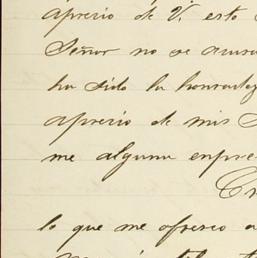 aprecio de V. esto
Señor no se
ha sido la honradez
aprecio de mis
me alguna empre
Cr
lo que me ofresco a